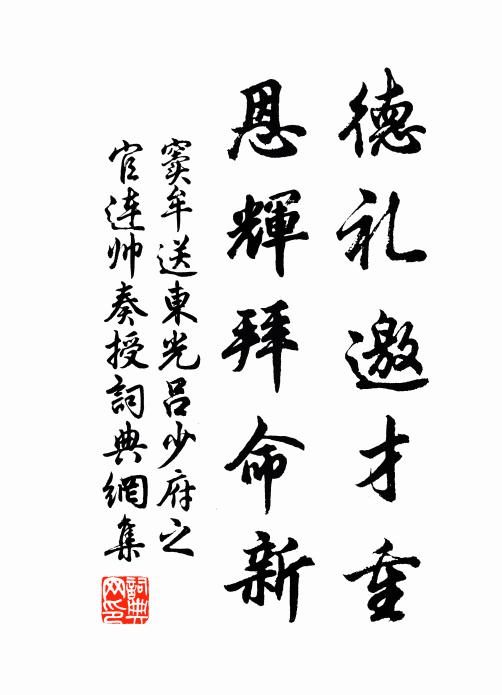 德礼邀才重
恩輝拜命新
竇牟送東光吕少府之
官連帅奏授詞典網集
詞典网印